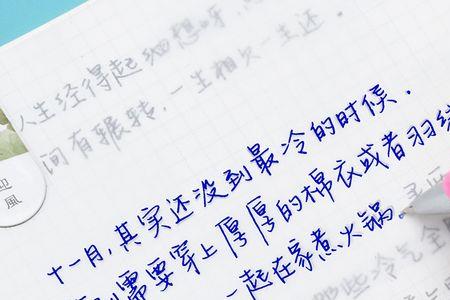 人生经得起
词有辗转,一生相欠一生还.
十一月,其实还没到最冷的时候.
需要穿上厚厚的棉衣或者羽
一起在家煮火锅。
些冷气全
迎風